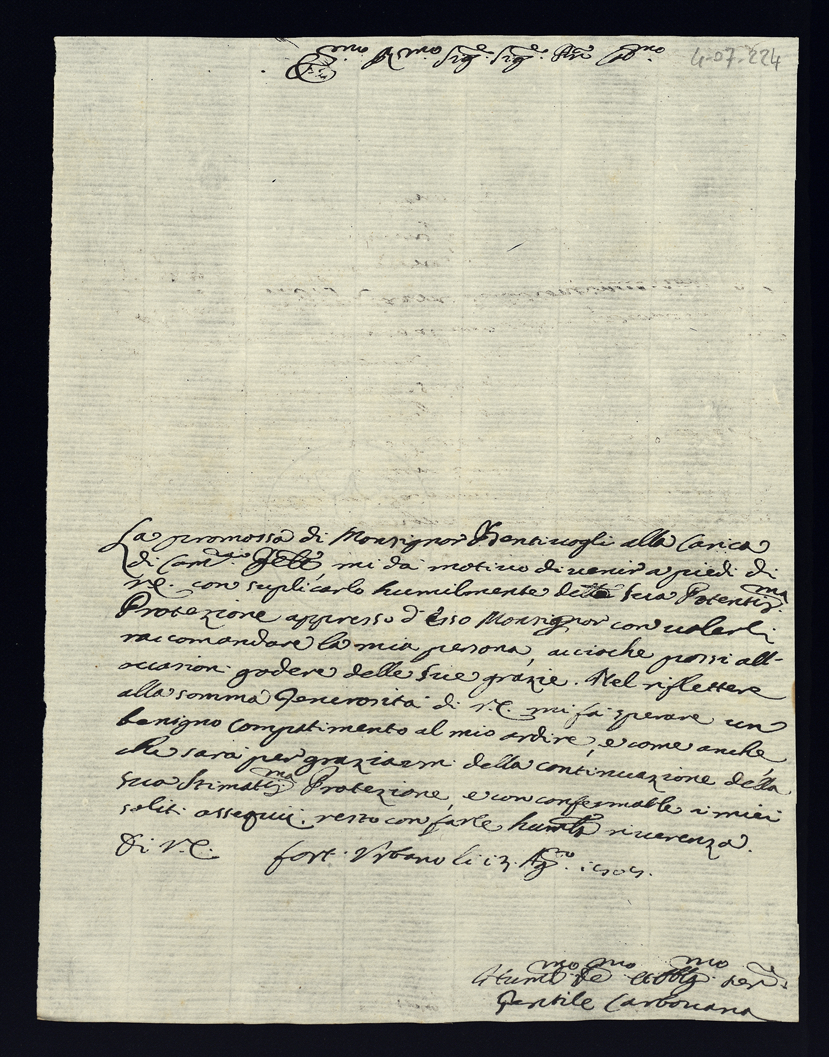 4-07-224
Em.mo R.mo Sig.e Sig.e P.rne Col.mo
La promossa di Monsignor Bentivogli alla Carica
di Cam.ra mi da motivo di venir a piedi di
V.E. con suplicarlo humilmente della sua Potentis.ma
Protezione appresso d'esso Monsignor con volerli
raccomandare la mia persona, accioche possi all'
occasioni godere delle sue grazie. Nel riflettere
alla somma Generosità di V.E. mi fà sperare un
benigno compatimento al mio ardire, e come anche
che sarà per graziarmi della continuazione della
sua Stimatis.ma Protezione, e con confermarle i miei
soliti ossequii, resto con farle humil.ma riverenza.
Di V.E. Fort Urbano li 13 Ag.
Humil.mo De.mo et Obblig.mo ser.
Gentile Carbonana